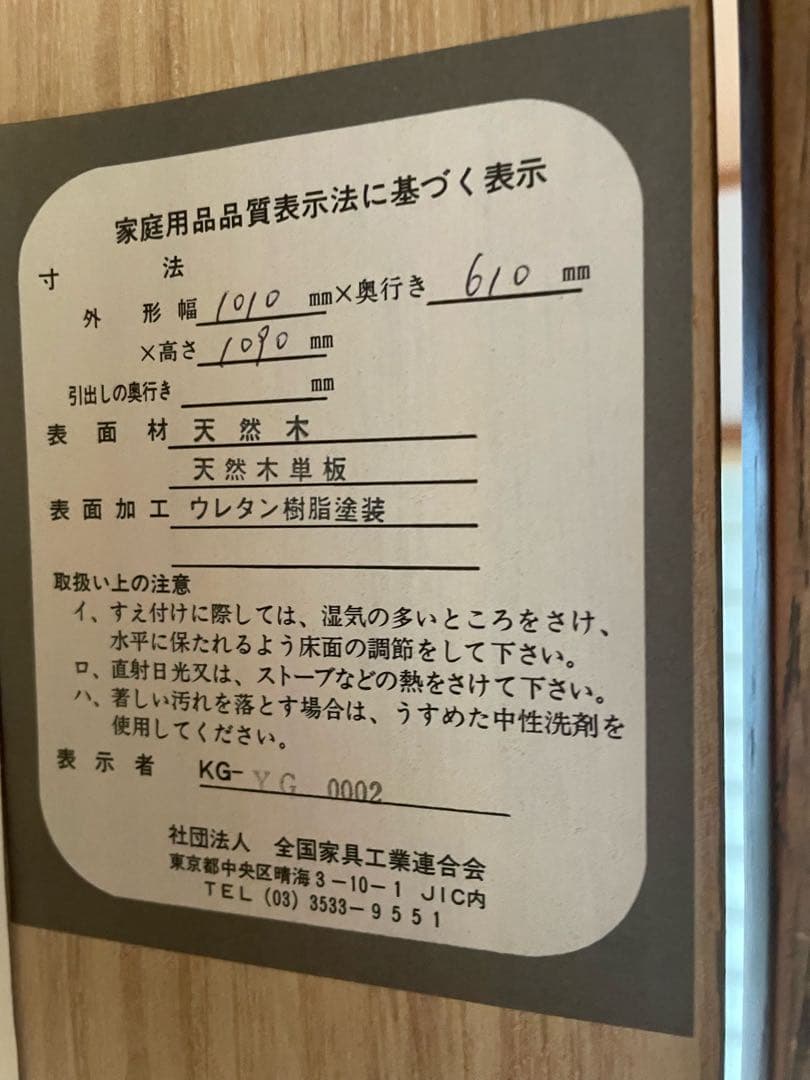 家庭用品品質表示法に基づく表示
寸法
外形幅 1010 mm×奥行き 610 mm
×高さ 1090 mm
引出しの奥行き mm
表面材 天然木
天然木単板
表面加工 ウレタン樹脂塗装
取扱い上の注意
イ、すえ付けに際しては、湿気の多いところをさけ、
水平に保たれるよう床面の調節をして下さい。
ロ、直射日光又は、ストーブなどの熱をさけて下さい。
ハ、著しい汚れを落とす場合は、うすめた中性洗剤を
使用してください。
表示者 KG-YG 0002
社団法人 全国家具工業連合会
東京都中央区晴海3-10-1 JIC内
TEL (03) 3533-9551